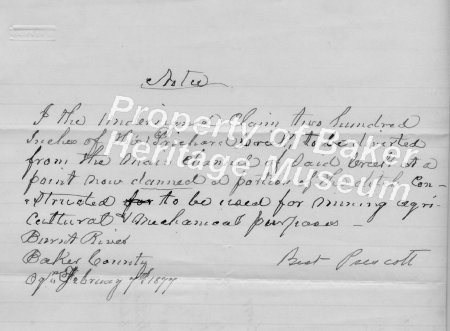 Notice
I the undersigned Claim two hundred
Inches of the Prichard Creek to be diverted
from the main Channel of said Creek at a
point now damned & a portion of ditch Con-
structed to be used for mining agri-
cultural & Mechanical purposes –
Burnt River
Baker County
Ogn February 7th 1877
Bert Prescott
Property of Baker
Heritage Museum